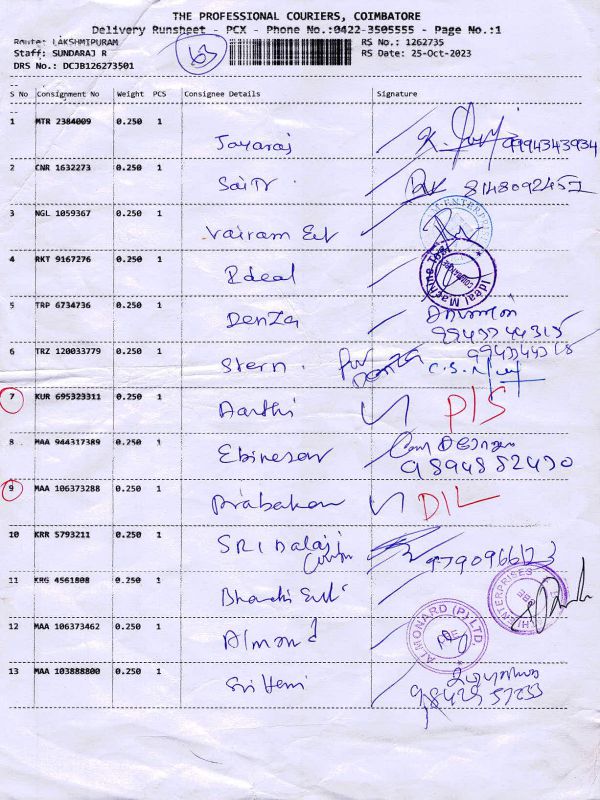 THE PROFESSIONAL COURIERS, COIMBATORE
Delivery Runsheet - PCX - Phone No.:0422-3505555 - Page No.:1
Route: LAKSHMIPURAM
Staff: SUNDARAJ R
DRS No.: DCJB126273501
63
RS No.: 1262735
RS Date: 25-Oct-2023
S No Consignment No Weight PCS Consignee Details Signature
1 MTR 2384009 0.250 1 Jayaraj 9994343934
2 CNR 1632273 0.250 1
3 NGL 1059367 0.250 1 Vairam Ent ENTERPRISES
4 RKT 9167276 0.250 1 Ideal Ideal Machine Tools COIMBATORE
5 TRP 6734736 0.250 1 Denza
6 TRZ 120033779 0.250 1 Stern for Denza
7 KUR 695323311 0.250 1 Aarthi P/S
8 MAA 944317389 0.250 1 Ebinesar 9894882490
9 MAA 106373288 0.250 1 Prabakan D/L
10 KRR 5793211 0.250 1 SRI Balaji 9790966123
11 KRG 4561808 0.250 1 Bharathi Ent ENTERPRISES
12 MAA 106373462 0.250 1 Almond ALMONARD (P) LTD.
13 MAA 103888800 0.250 1 Sri Hari